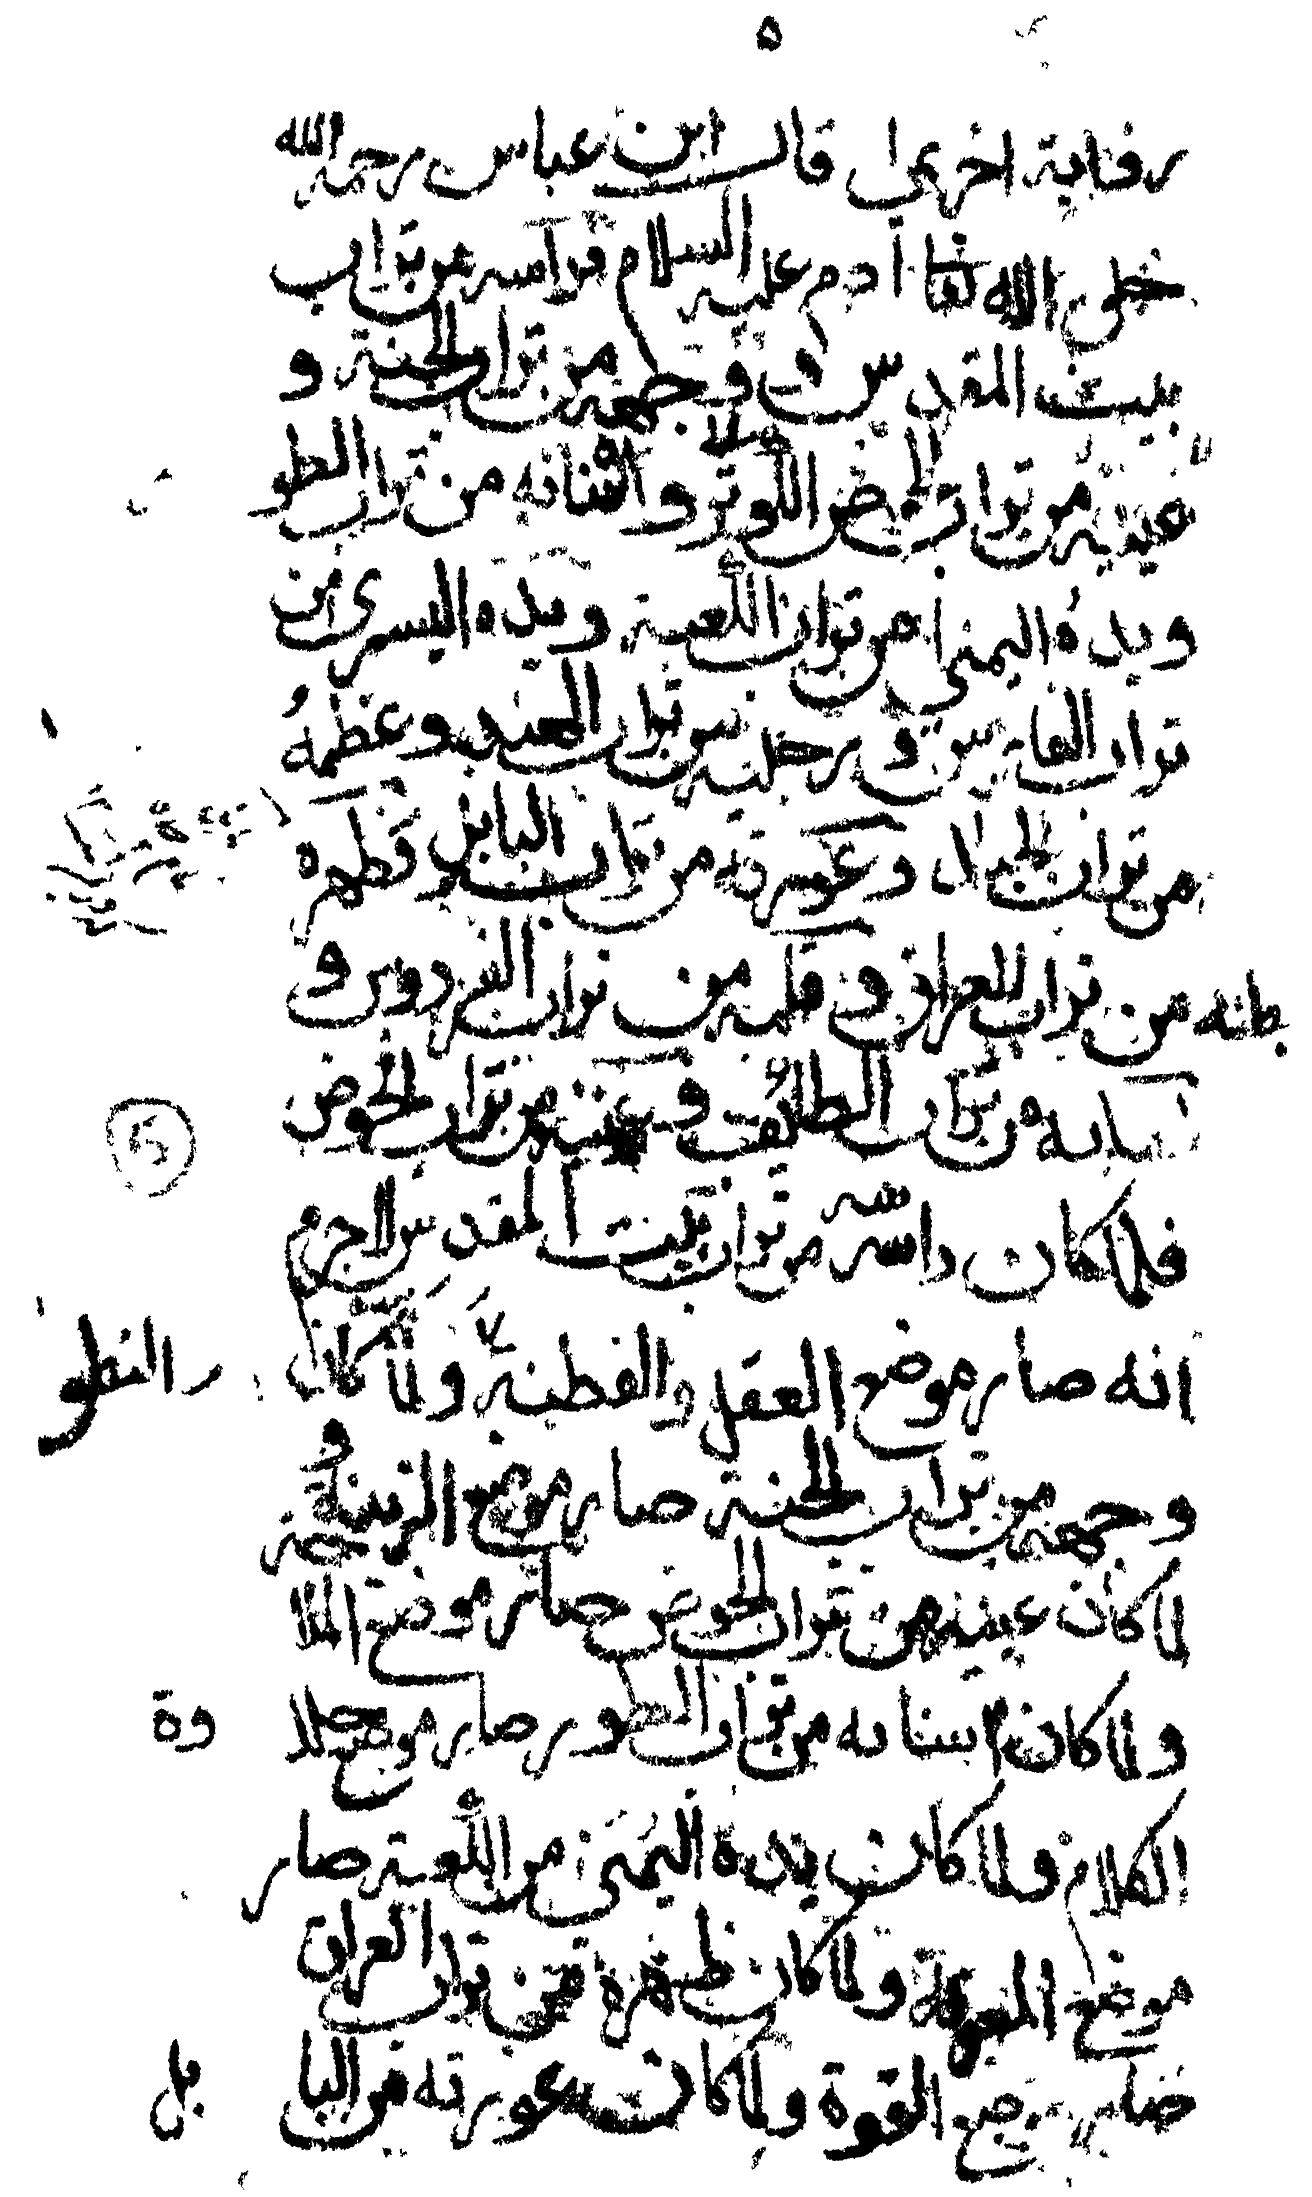 ٥
رفاية اخرى قال ابن عباس رحمه الله
خلق الله تعا ادم عليه السلام فراسه من تراب
بيت المقدس و وجهه من تراب الجنة و
عينيه من تراب الحوض الكوثر و اسنانه من تراب الطو
ويده اليمنى من تراب الكعبة ويده اليسرى من
تراب الفارس و رجليه من تراب الهند وعظمه
من تراب الجبال وعورته من تراب البابل وظهره
بطنه من تراب العراق و قلبه من تراب الفردوس و
لسانه من تراب الطائف و عينيه من تراب الحوض
5
فلما كان راسه من تراب بيت المقدس لاجرم
انه صار موضع العقل والفطنة ولما كان
ر النطو
وجهه من تراب الجنة صار موضع الزينة و
لما كان عينيه من تراب الحوض صار موضع الملا
ولما كان اسنانه من تراب الطور صار موضع حلا
وة
الكلام ولما كان يده اليمنى من الكعبة صار
موضع المعرفة ولما كان ظهره من تراب العراق
صار موضع القوة ولما كان عورته من البا
بل